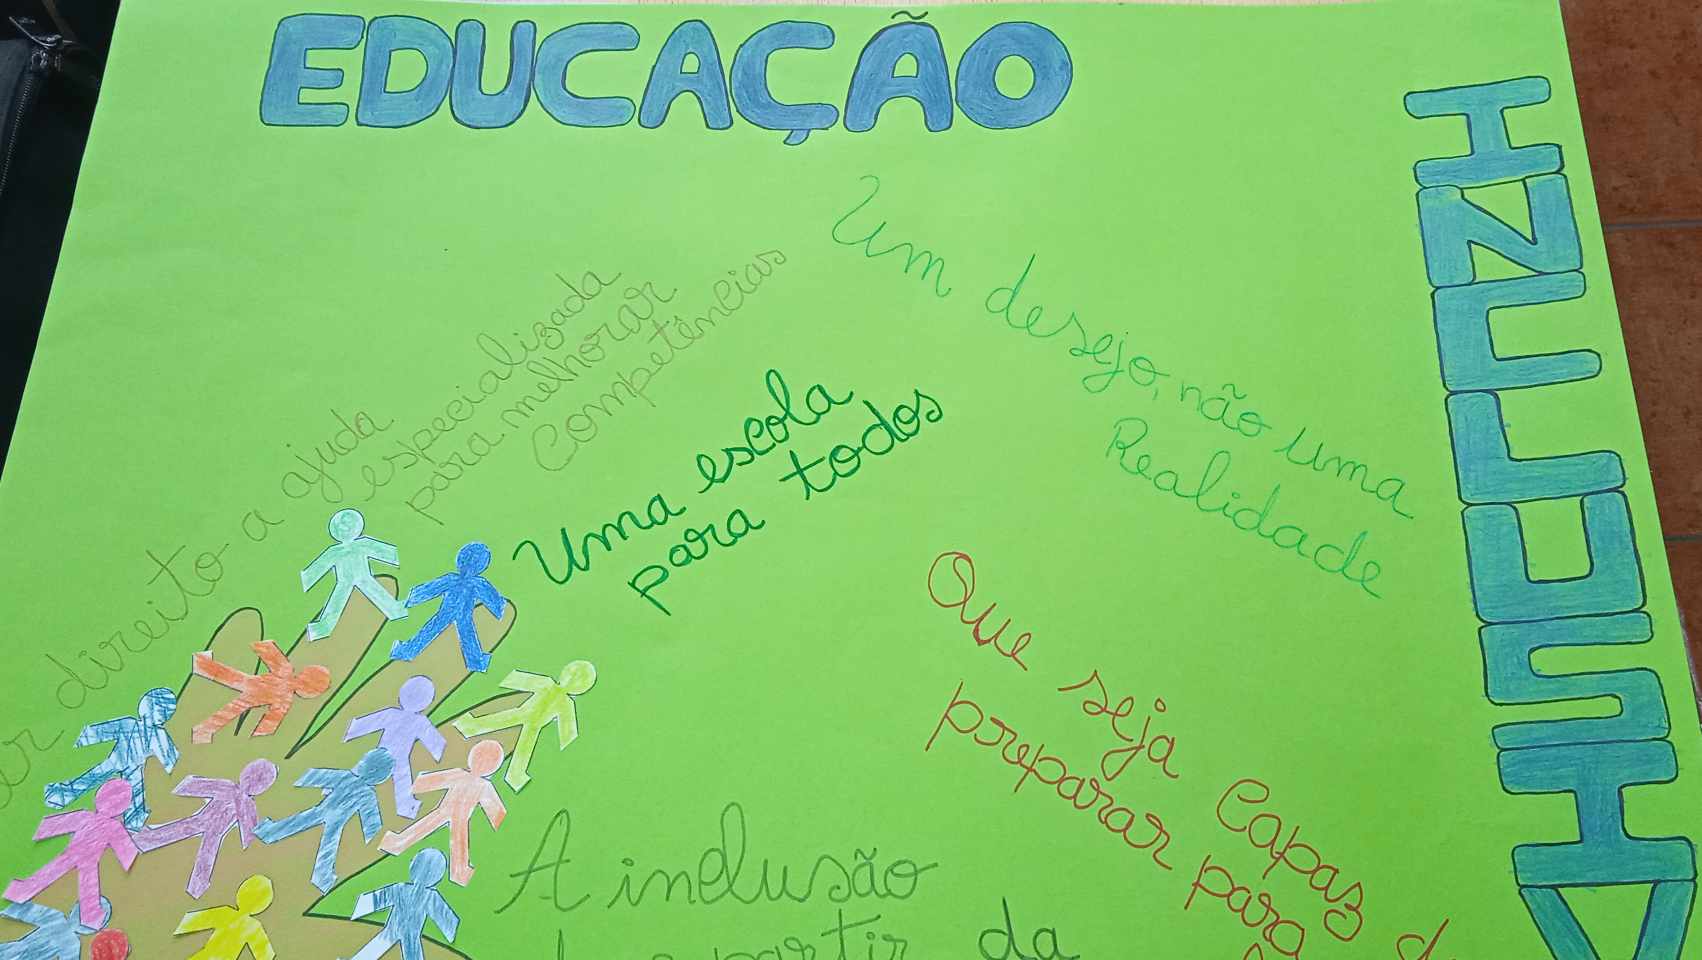 EDUCAÇÃO
INCLUSIV
Um desejo, não uma
Realidade
direito a ajuda
especializada
para melhorar
Competências
Uma escola
para todos
Que seja capaz
preparar para
A inclusão
partir da